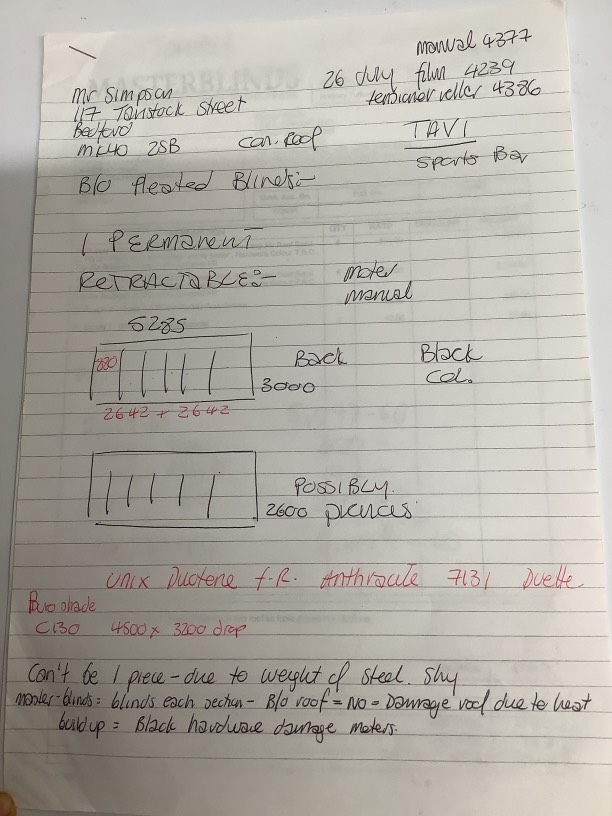 manual 4377
26 July film 4239
tensioner roller 4386
Mr Simpson
117 Tavistock Street
Bedford
MK40 2SB
Con. Roof
TAVI
Sports Bar
B/O Pleated Blinds:-
1 PERMANENT
RETRACTABLE:-
moter
manual
5285
880
Back
3000
Black
Col.
2642 + 2642
POSSIBLY
2600 pieces
Unix Duotone f.R. Anthracite 7131 Duette
shade
C130 4500 x 3200 drop
Can't be 1 piece - due to weight of steel. Shy
master-blinds: blinds each section - B/O roof = No = Damage roof due to heat
buildup = Black hardware damage moters.
MASTERBLINDS